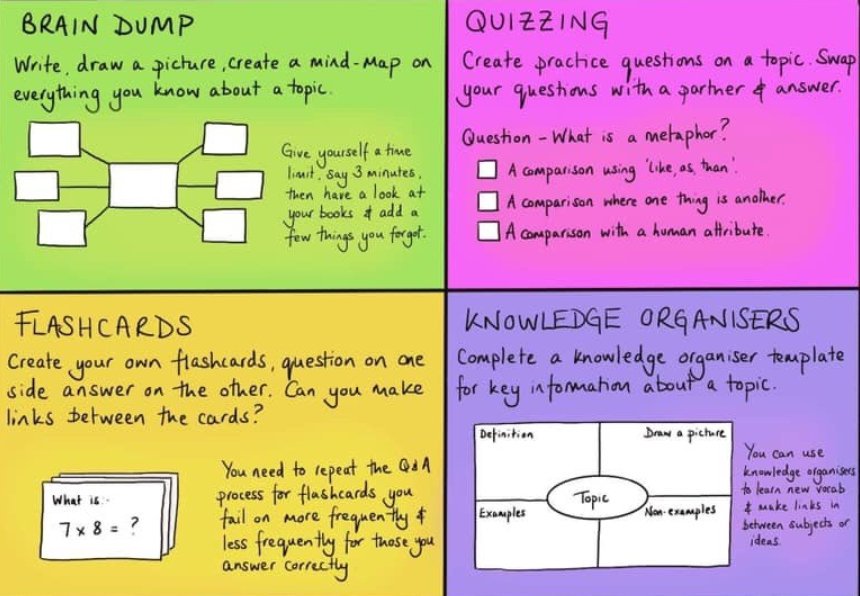 BRAIN DUMP
Write, draw a picture, create a mind-map on
everything you know about a topic.
Give yourself a time
limit, say 3 minutes,
then have a look at
your books & add a
few things you forgot.
QUIZZING
Create practice questions on a topic. Swap
your questions with a partner & answer.
Question - What is a metaphor?
A comparison using 'like, as, than'.
A comparison where one thing is another.
A comparison with a human attribute.
FLASHCARDS
Create your own flashcards, question on one
side answer on the other. Can you make
links between the cards?
What is:-
7 x 8 = ?
You need to repeat the Q&A
process for flashcards you
fail on more frequently &
less frequently for those you
answer correctly
KNOWLEDGE ORGANISERS
Complete a knowledge organiser template
for key information about a topic.
Definition
Draw a picture
Topic
Examples
Non-examples
You can use
knowledge organisers
to learn new vocab
& make links in
between subjects or
ideas.